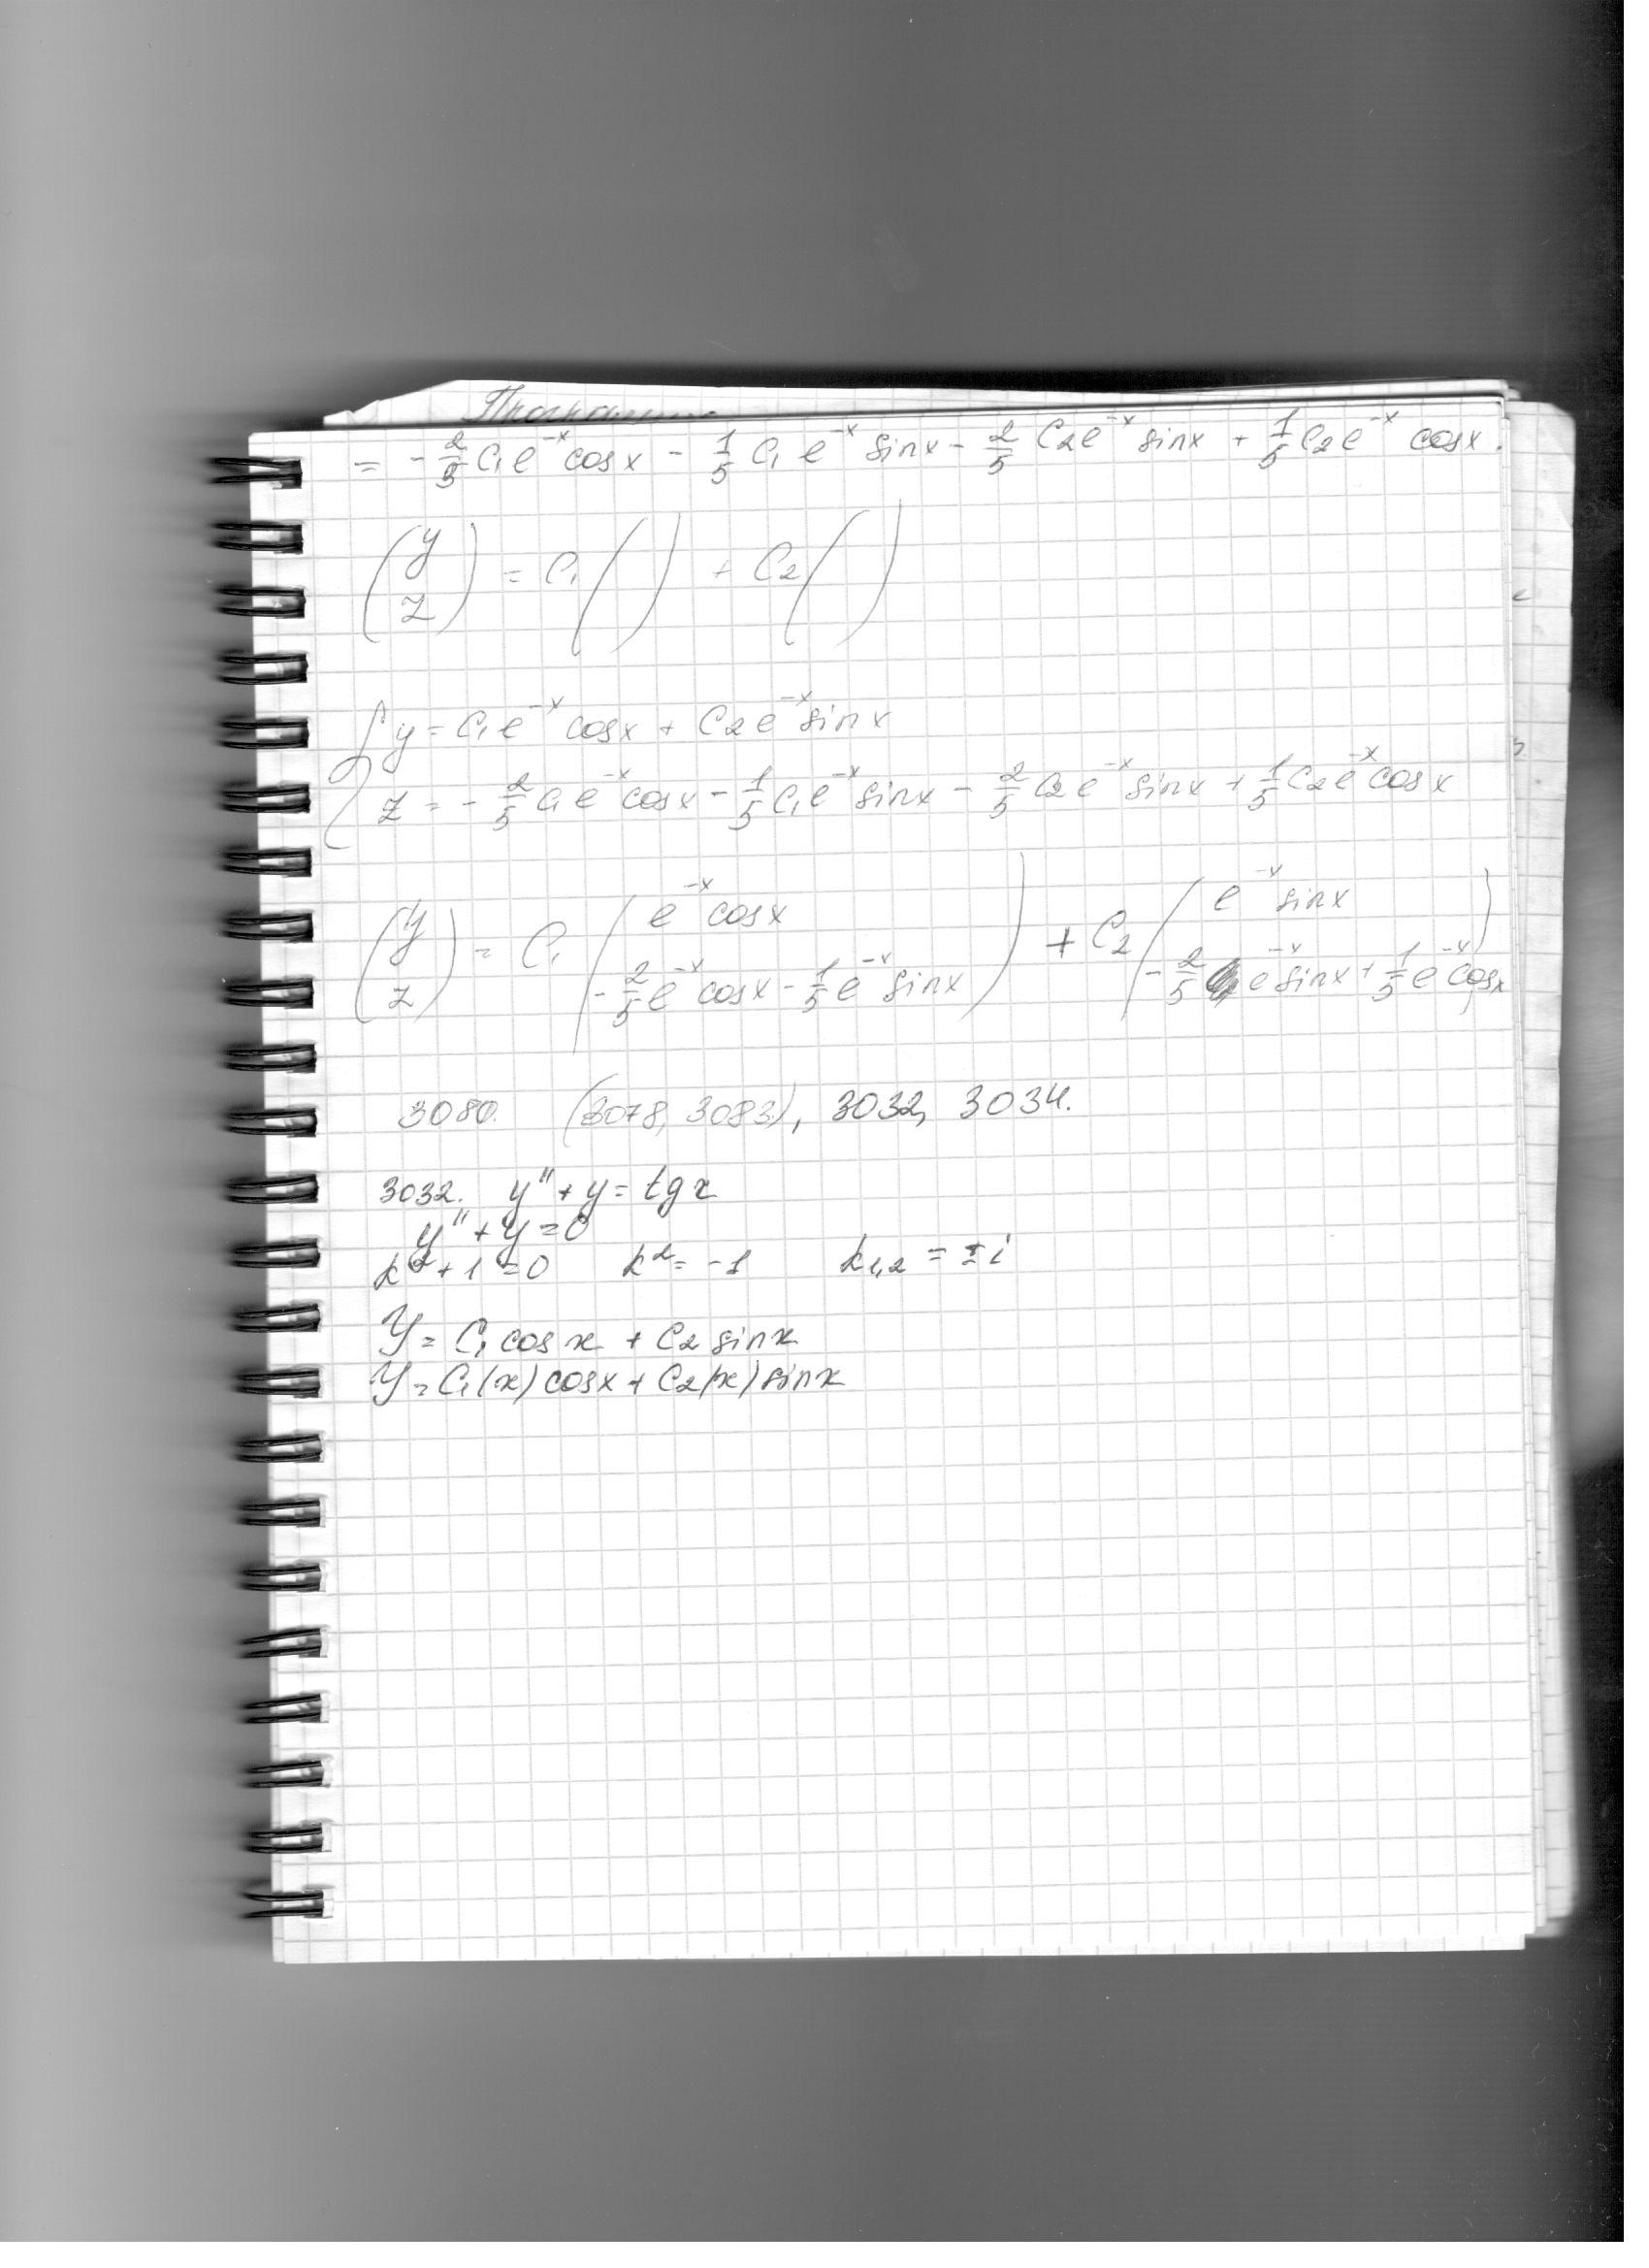 = - 2/5 C₁e⁻ˣ cosx - 1/5 C₁e⁻ˣ sinx - 2/5 C₂e⁻ˣ sinx + 1/5 C₂e⁻ˣ cosx.
(y z) = C₁( ) + C₂( )
{ y = C₁e⁻ˣ cosx + C₂e⁻ˣ sinx
z = - 2/5 C₁e⁻ˣ cosx - 1/5 C₁e⁻ˣ sinx - 2/5 C₂e⁻ˣ sinx + 1/5 C₂e⁻ˣ cosx
(y z) = C₁ (e⁻ˣ cosx - 2/5 e⁻ˣ cosx - 1/5 e⁻ˣ sinx) + C₂ (e⁻ˣ sinx - 2/5 e⁻ˣ sinx + 1/5 e⁻ˣ cosx)
3080. (3078, 3083), 3032, 3034.
3032. y'' + y = tgx
y'' + y = 0
k² + 1 = 0 k² = -1 k₁,₂ = ±i
Y = C₁ cosx + C₂ sinx
Y = C₁(x) cosx + C₂(x) sinx